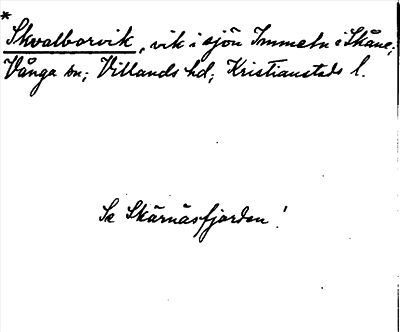 * Skvalborvik, vik i sjön Immeln i Skåne;
Vånga sn; Villands hd; Kristianstads l.
Se Skärnäsfjorden!